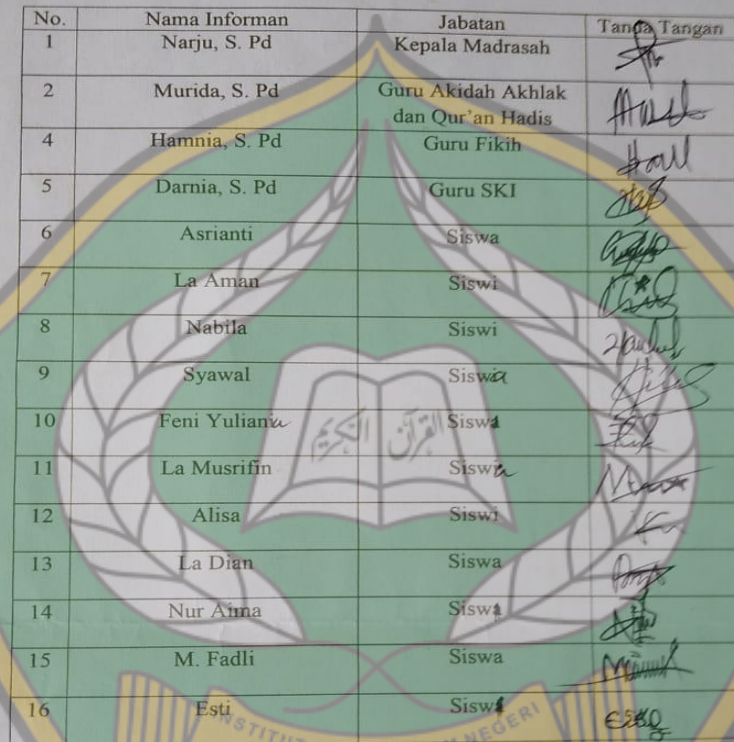 No. Nama Informan Jabatan Tanda Tangan
1 Narju, S. Pd Kepala Madrasah
2 Murida, S. Pd Guru Akidah Akhlak
dan Qur'an Hadis
4 Hamnia, S. Pd Guru Fikih
5 Darnia, S. Pd Guru SKI
6 Asrianti Siswa
7 La Aman Siswi
8 Nabila Siswi
9 Syawal Siswa
10 Feni Yuliana Siswi
11 La Musrifin Siswa
12 Alisa Siswi
13 La Dian Siswa
14 Nur Aima Siswi
15 M. Fadli Siswa
16 Esti Siswi
القرآن الكريم
NEGERI